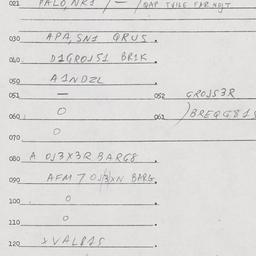 021 PALO, NR1 / — /
030 APA, SN1 QRUS.
040 D1GROJS1 BR1K
050 A1NDZL
051 — 052 GROJS3R
060 O 061 )BREQG81S
070 O
080 A OJ3X3R BARG8
090 AFM 7 OJ3XN BARG.
100 O
110 O
120 XVAL81S